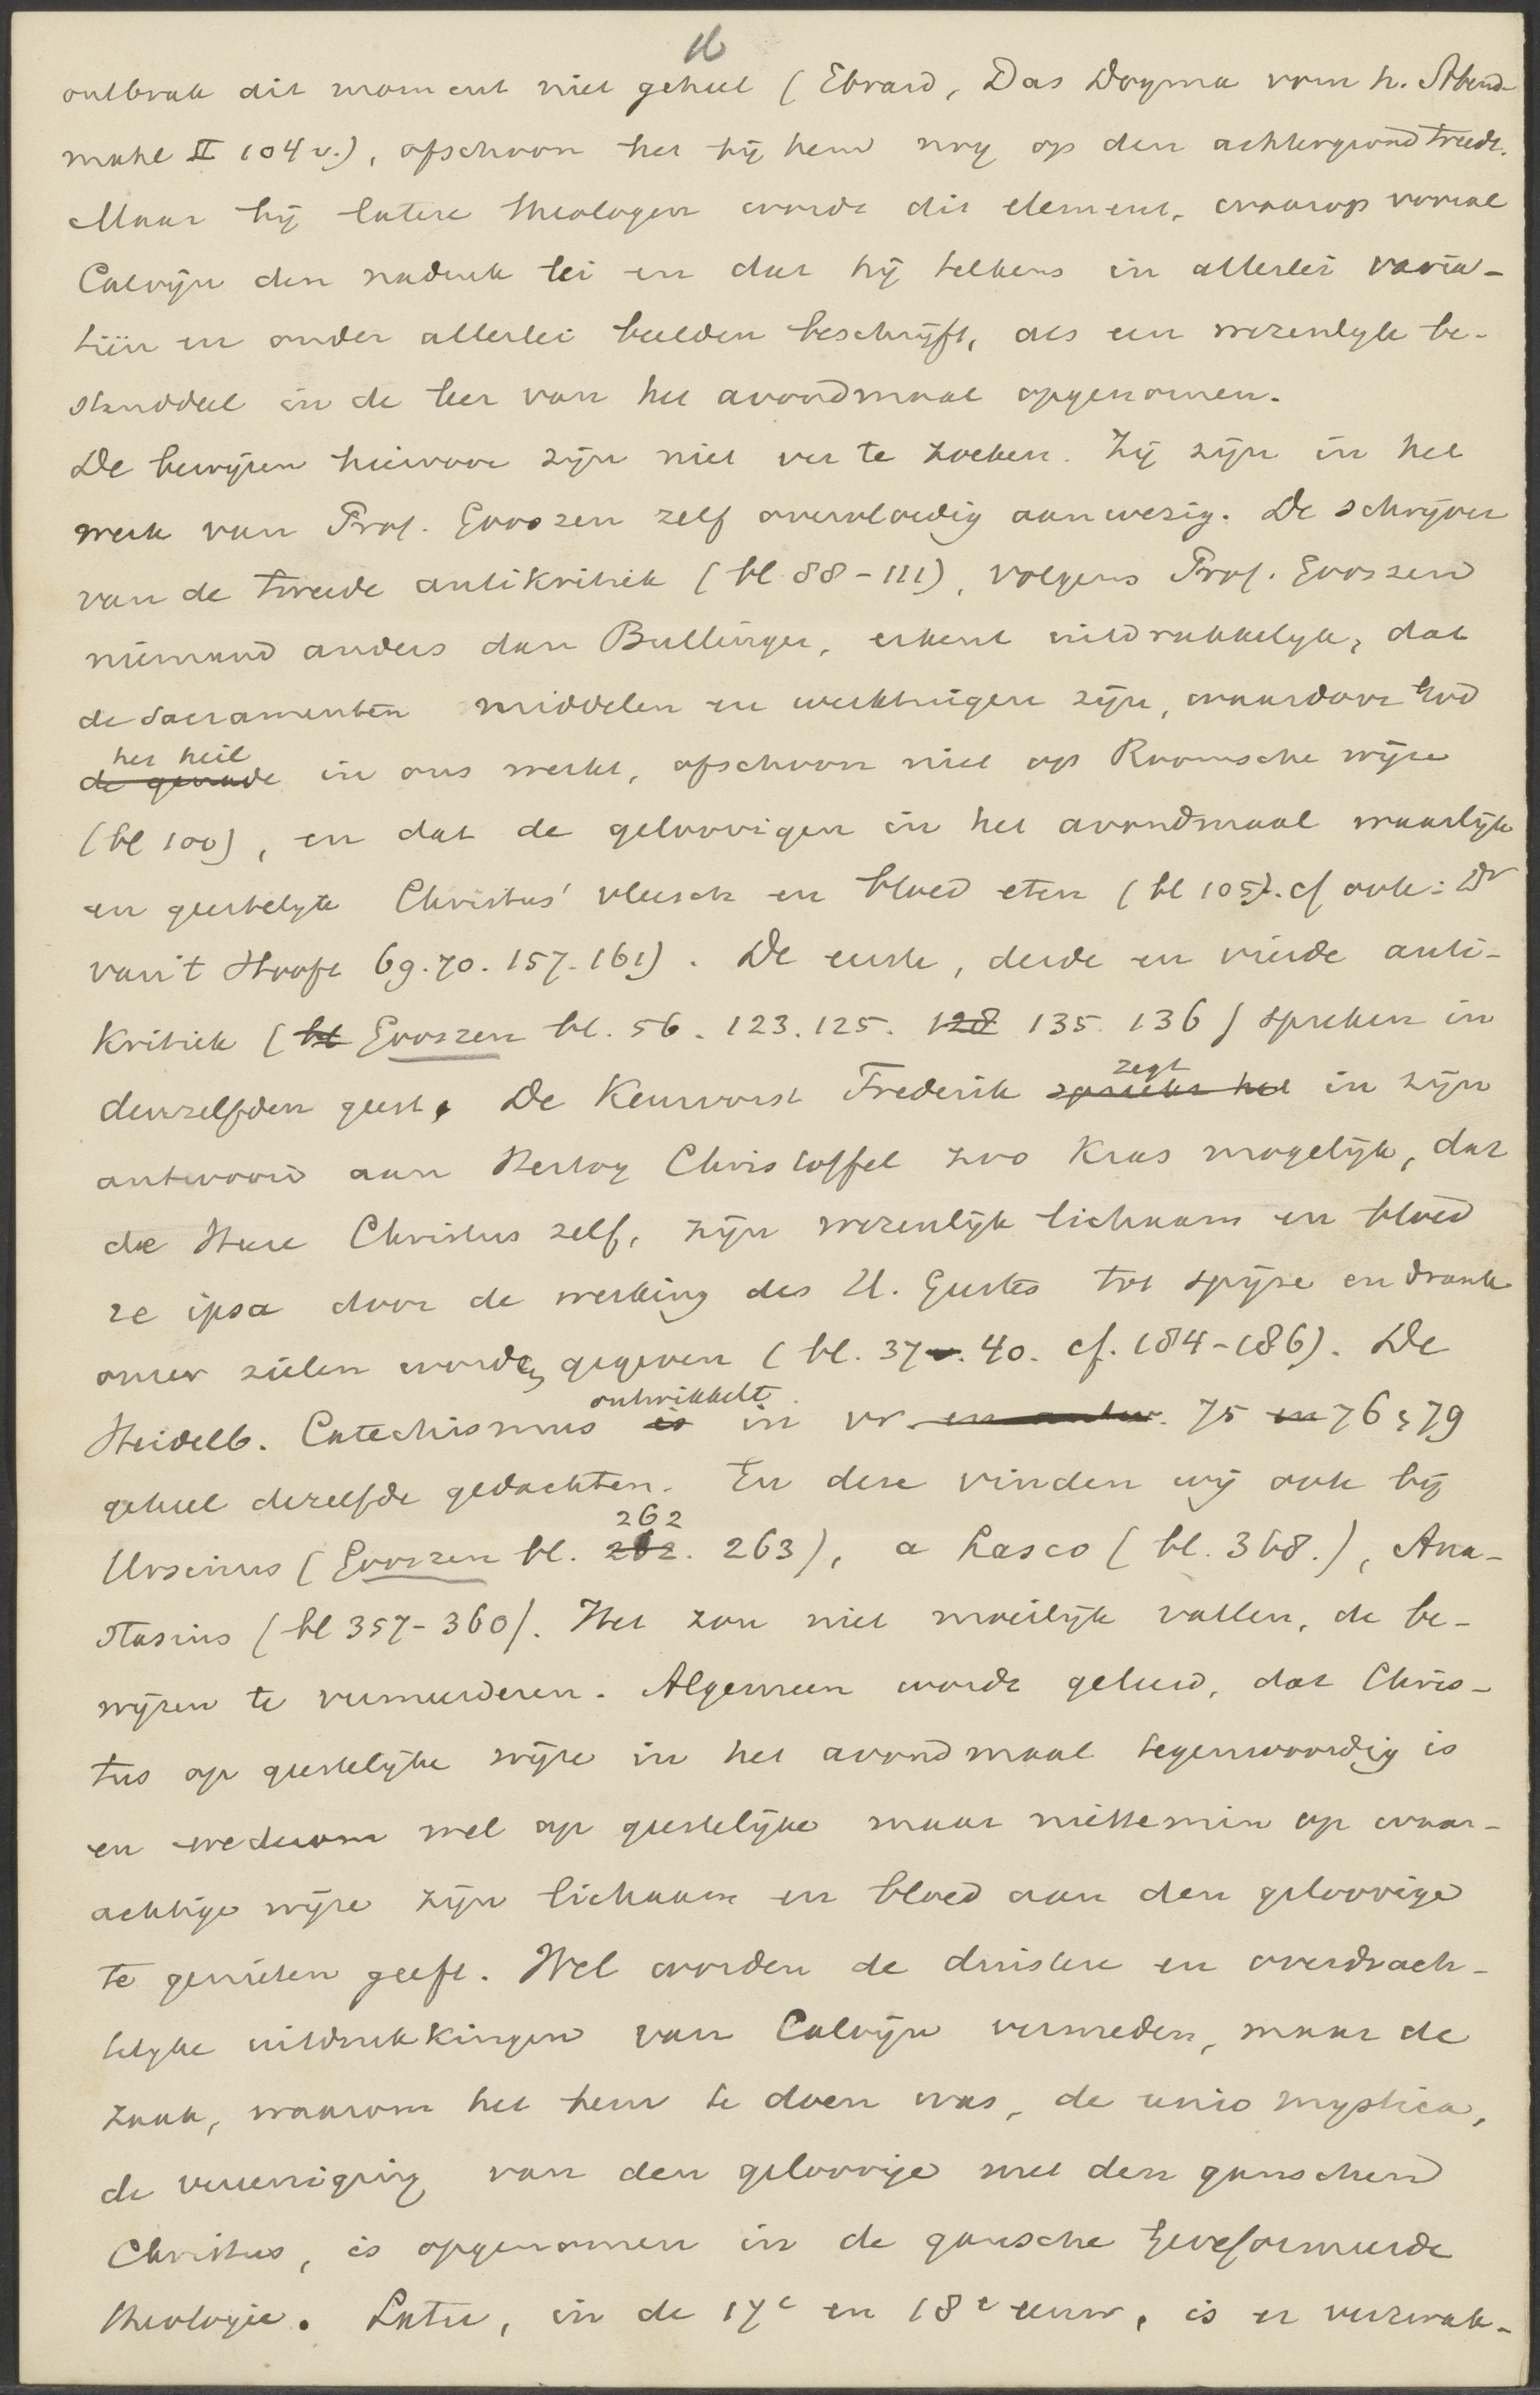 16
ontbrak dit moment niet geheel (Ebrard, Das Dogma vom h. Abend-
mahl II 104 v.), ofschoon het bij hem nog op den achtergrond treedt.
Maar bij latere theologen wordt dit element, waarop vooral
Calvijn den nadruk lei en dat hij telkens in allerlei varia-
tiën en onder allerlei beelden beschrijft, als een wezenlijk be-
standdeel in de leer van het avondmaal opgenomen.
De bewijzen hiervoor zijn niet ver te zoeken. Zij zijn in het
werk van Prof. Gooszen zelf overvloedig aanwezig. De schrijver
van de tweede antikritiek (bl 88-111), volgens Prof. Gooszen
niemand anders dan Bullinger, erkent uitdrukkelijk, dat
de Sacramenten middelen en werktuigen zijn, waardoor God
het heil
de genade in ons werkt, ofschoon niet op Roomsche wijze
(bl 100), en dat de geloovigen in het avondmaal waarlijk
en geestelijk Christus' vleesch en bloed eten (bl 105). cf ook: Dr
van 't Hooft 69. 70. 157. 161). De eerste, derde en vierde anti-
kritiek (bl Gooszen bl. 56. 123. 125. 128 135. 136) spreken in
denzelfden geest. De Keurvorst Frederik spreekt het zegt in zijn
antwoord aan Hertog Christoffel zoo kras mogelijk, dat
de Heere Christus zelf, zijn wezenlijk lichaam en bloed
re ipsa door de werking des H. Geestes tot spijze en drank
onzer zielen worden gegeven (bl. 37 v. 40. cf. 184-186). De
Heidelb. Catechismus is ontwikkelt in vr. en antw. 75 en 76 & 79
geheel dezelfde gedachten. En deze vinden wij ook bij
262
Ursinus (Gooszen bl. 262. 263), a Lasco (bl. 368.), Ana-
stasius (bl 357-360). Het zou niet moeilijk vallen, de be-
wijzen te vermeerderen. Algemeen wordt geleerd, dat Chris-
tus op geestelijke wijze in het avondmaal tegenwoordig is
en wederom wel op geestelijke maar niettemin op waar-
achtige wijze zijn lichaam en bloed aan den geloovige
te genieten geeft. Wel worden de duistere en overdrach-
telijke uitdrukkingen van Calvijn vermeden, maar de
zaak, waarom het hem te doen was, de unio mystica,
de vereeniging van den geloovige met den ganschen
Christus, is opgenomen in de gansche Gereformeerde
theologie. Later, in de 17e en 18e eeuw, is er verzwak-